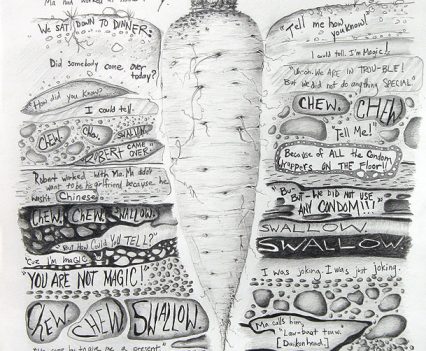 Ma had worked at home.
We SAT DOWN TO DINNER:
Did Somebody come over
today?
How did you know?
I could tell.
CHEW. Chew. SWALLOW.
"ROBERT CAME
OVER"
Robert worked with Ma. Ma didn't
want to be his girlfriend because he
wasn't Chinese.
CHEW. CHEW. SWALLOW.
"But How Could You TELL?"
"Coz I'm MAGIC."
"YOU ARE NOT MAGIC!"
CHEW. CHEW SWALLOW.
"He came by to give me a present."
"Tell me how
you know!
I could tell. I'm Magic!
"Uh-oh. WE ARE IN TROU-BLE!
But we did not do anything SPECIAL"
CHEW. CHEW
"Tell Me!"
Because of ALL the Condom
wrappers ON THE FLOOR!!
"Bu-
But - WE DID NOT USE
ANY CONDOM!!!"
SWALLOW.
SWALLOW.
I was joking. I was just joking.
Ma calls him,
"Low-boat tow."
[Daikon head.]